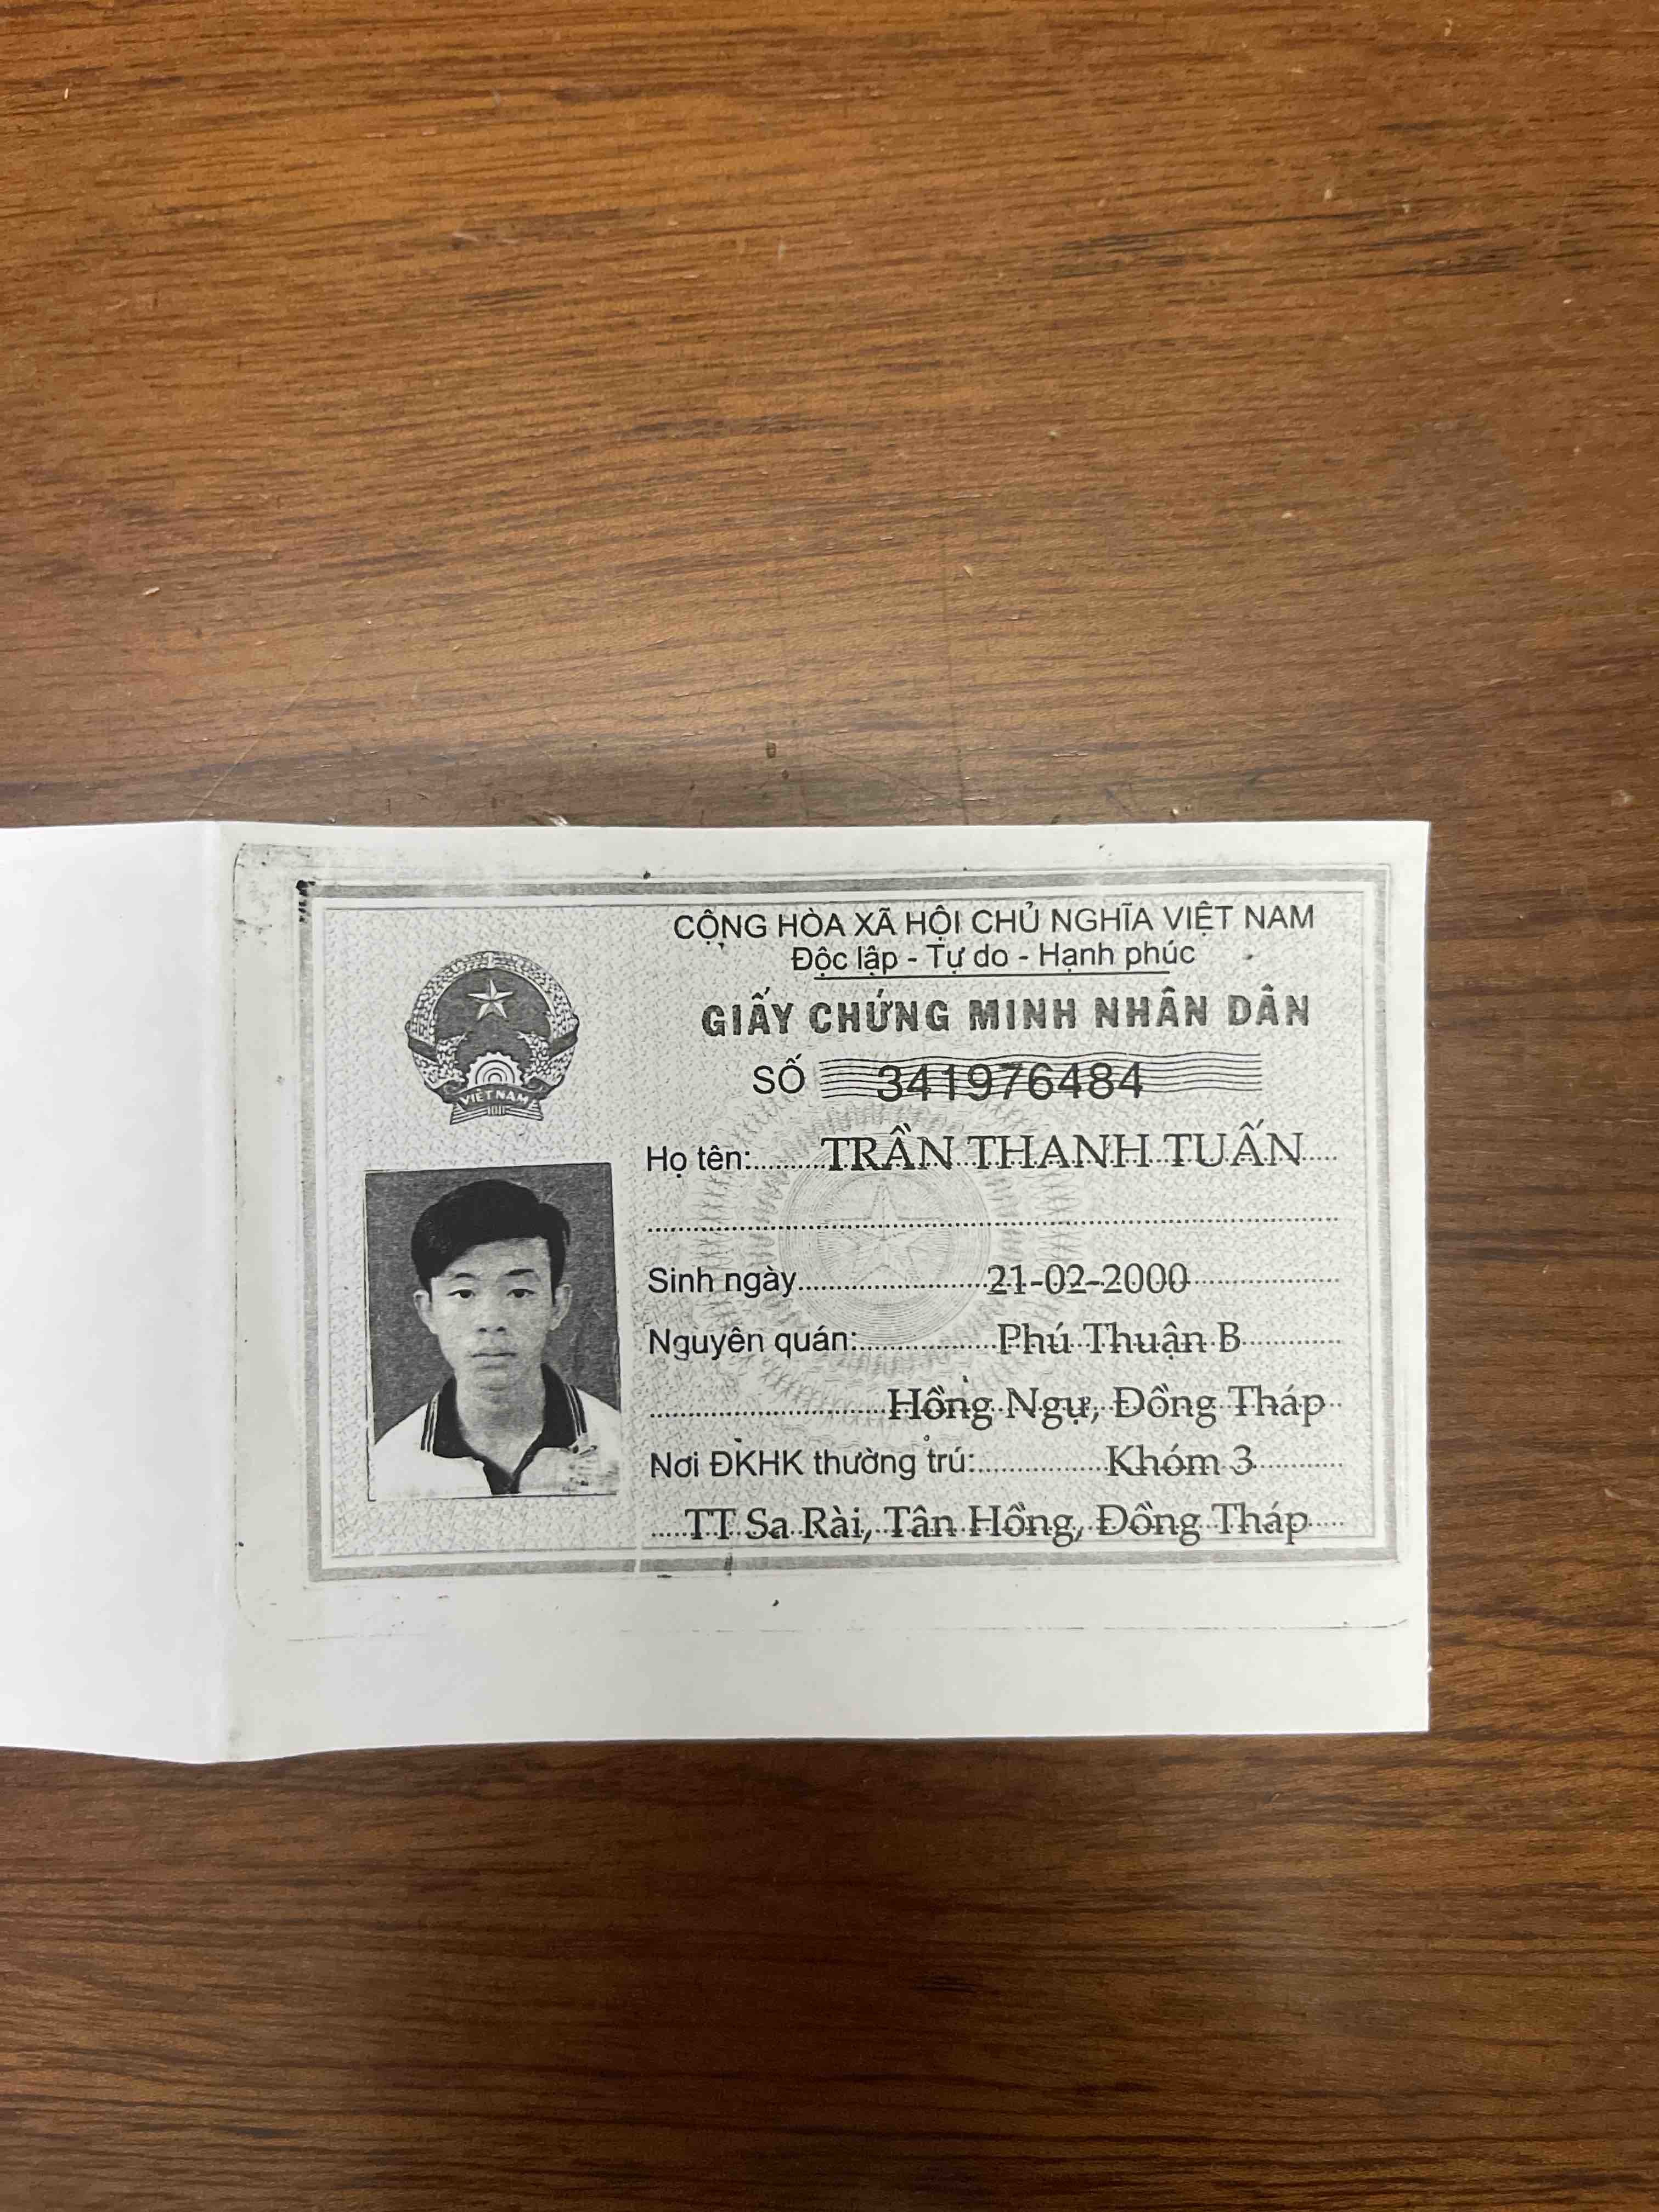 CỘNG HÒA XÃ HỘI CHỦ NGHĨA VIỆT NAM
Độc lập - Tự do - Hạnh phúc
GIẤY CHỨNG MINH NHÂN DÂN
SỐ 341976484
Họ tên: TRẦN THANH TUẤN
Sinh ngày 21-02-2000
Nguyên quán: Phú Thuận B
Hồng Ngự, Đồng Tháp
Nơi ĐKHK thường trú: Khóm 3
TT Sa Rài, Tân Hồng, Đồng Tháp
VIỆT NAM